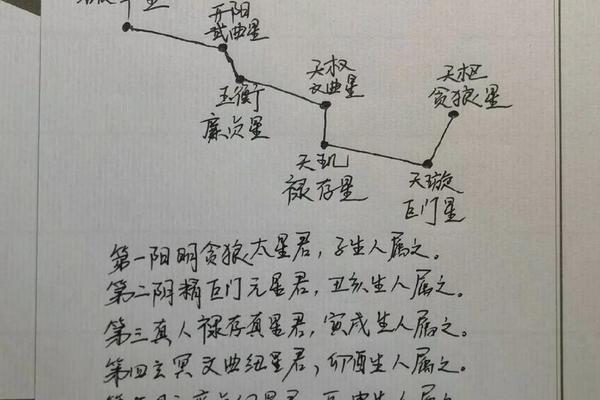 开阳
武曲星
玉衡
廉贞星
天权
文曲星
天枢
贪狼星
天玑
禄存星
天璇
巨门星
第一阳明贪狼太星君，子生人属之。
第二阴精巨门元星君，丑亥生人属之。
第三真人禄存真星君，寅戌生人属之。
第四玄冥文曲纽星君，卯酉生人属之。